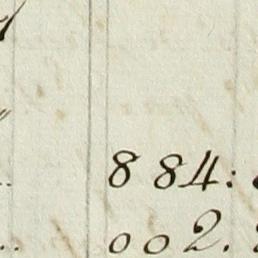 884:
002.